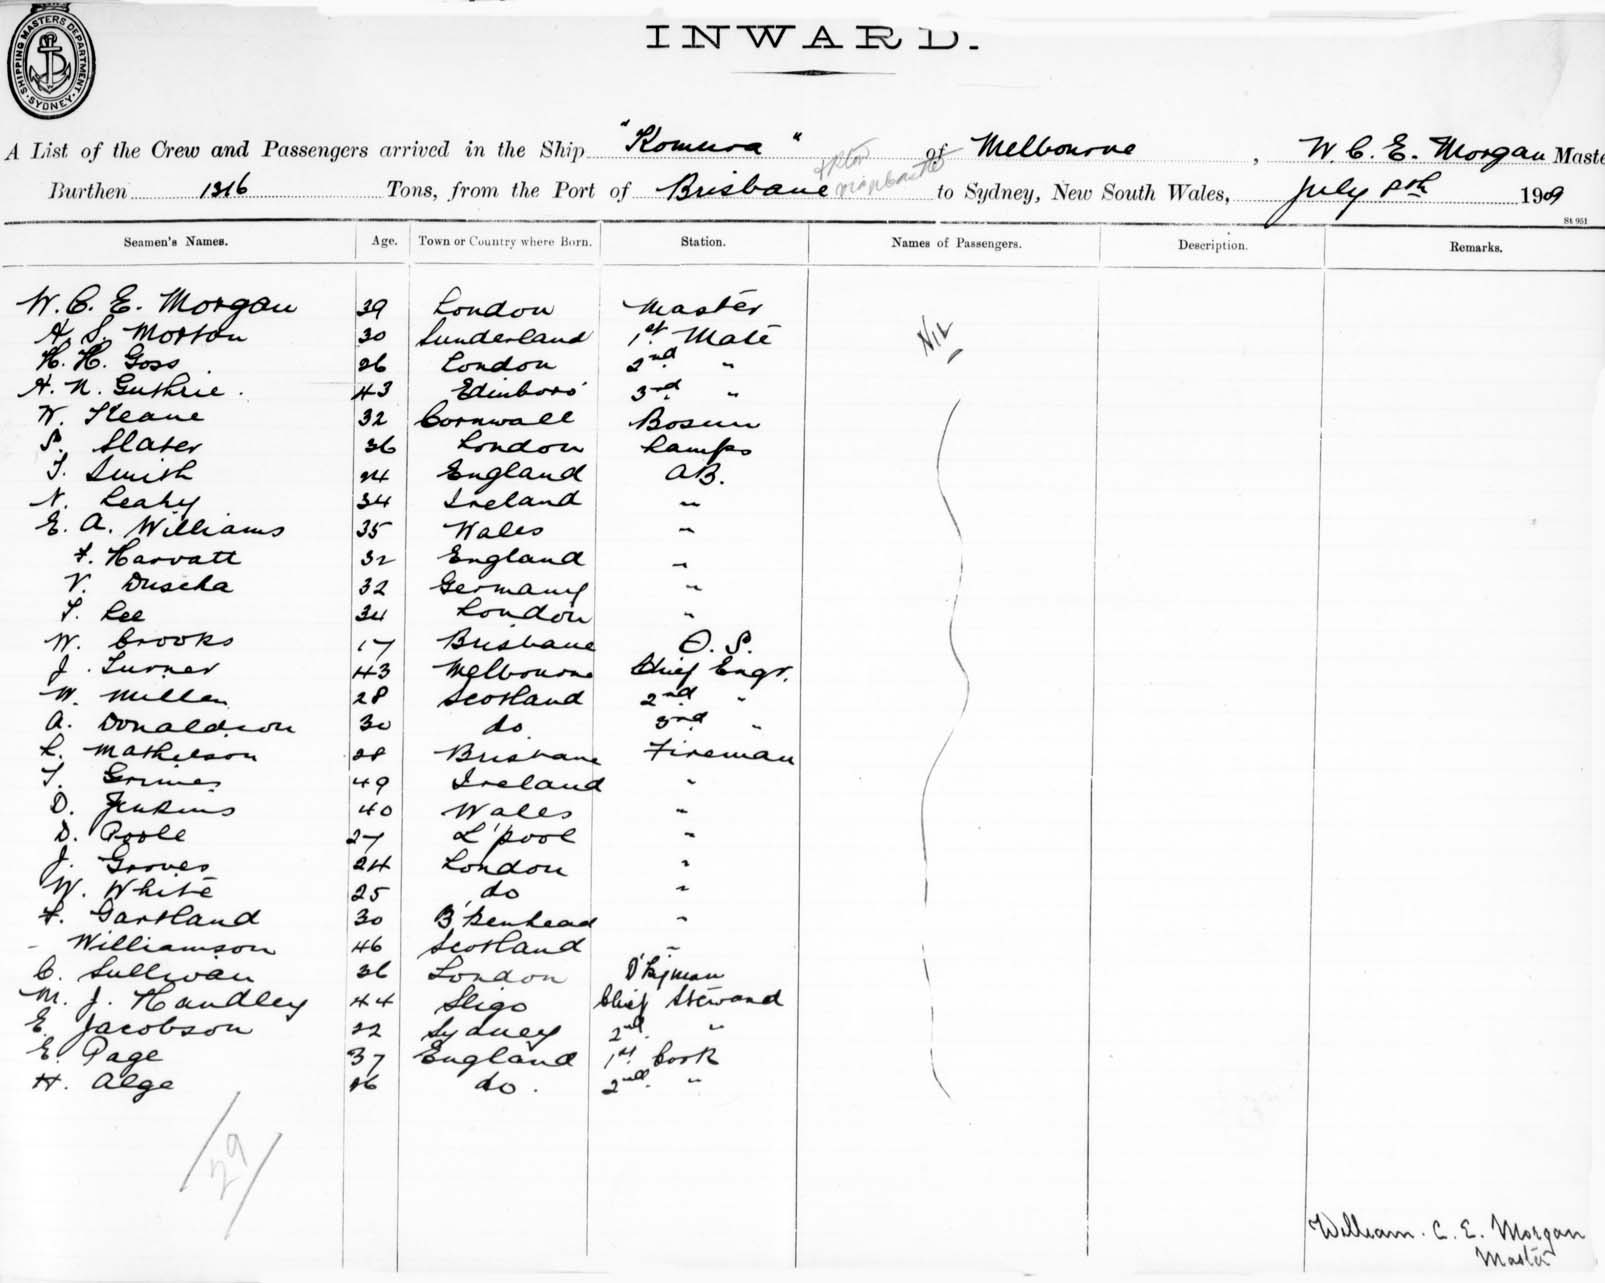 SHIPPING MASTERS DEPARTMENT
SYDNEY
INWARD.
A List of the Crew and Passengers arrived in the Ship "Komura" of Melbourne, W. C. E. Morgan Maste
Burthen 1316 Tons, from the Port of Brisbane to Sydney, New South Wales, July 8th 1909
St 951
Seamen's Names. Age. Town or Country where Born. Station. Names of Passengers. Description. Remarks.
W. C. E. Morgan 39 London Master
A. S. Morton 30 Sunderland 1st Mate Nil
H. H. Goss 26 London 2nd "
A. N. Guthrie. 43 Edinboro' 3rd "
W. Keane 32 Cornwall Bosun
S. Slater 36 London Lamps
T. Smith 24 England AB.
N. Leahy 34 Ireland "
E. A. Williams 35 Wales "
F. Harvatt 32 England "
V. Duscha 32 Germany "
T. Lee 34 London "
W. Crooks 17 Brisbane O. S.
J. Turner 43 Melbourne Chief Engr.
W. Millen 28 Scotland 2nd "
A. Donaldson 30 do 3rd "
L. Mathieson 28 Brisbane Fireman
T. Grimes 49 Ireland "
D. Jenkins 40 Wales "
D. Poole 27 L'pool "
J. Groves 24 London "
W. White 25 do "
F. Gartland 30 B'kenhead "
- Williamson 46 Scotland "
C. Sullivan 36 London D'kyman
M. J. Handley 44 Sligo Chief Steward
E. Jacobson 22 Sydney 2nd. "
E. Page 37 England 1st. Cook
H. Alge 26 do. 2nd. "
29
William. C. E. Morgan
Master